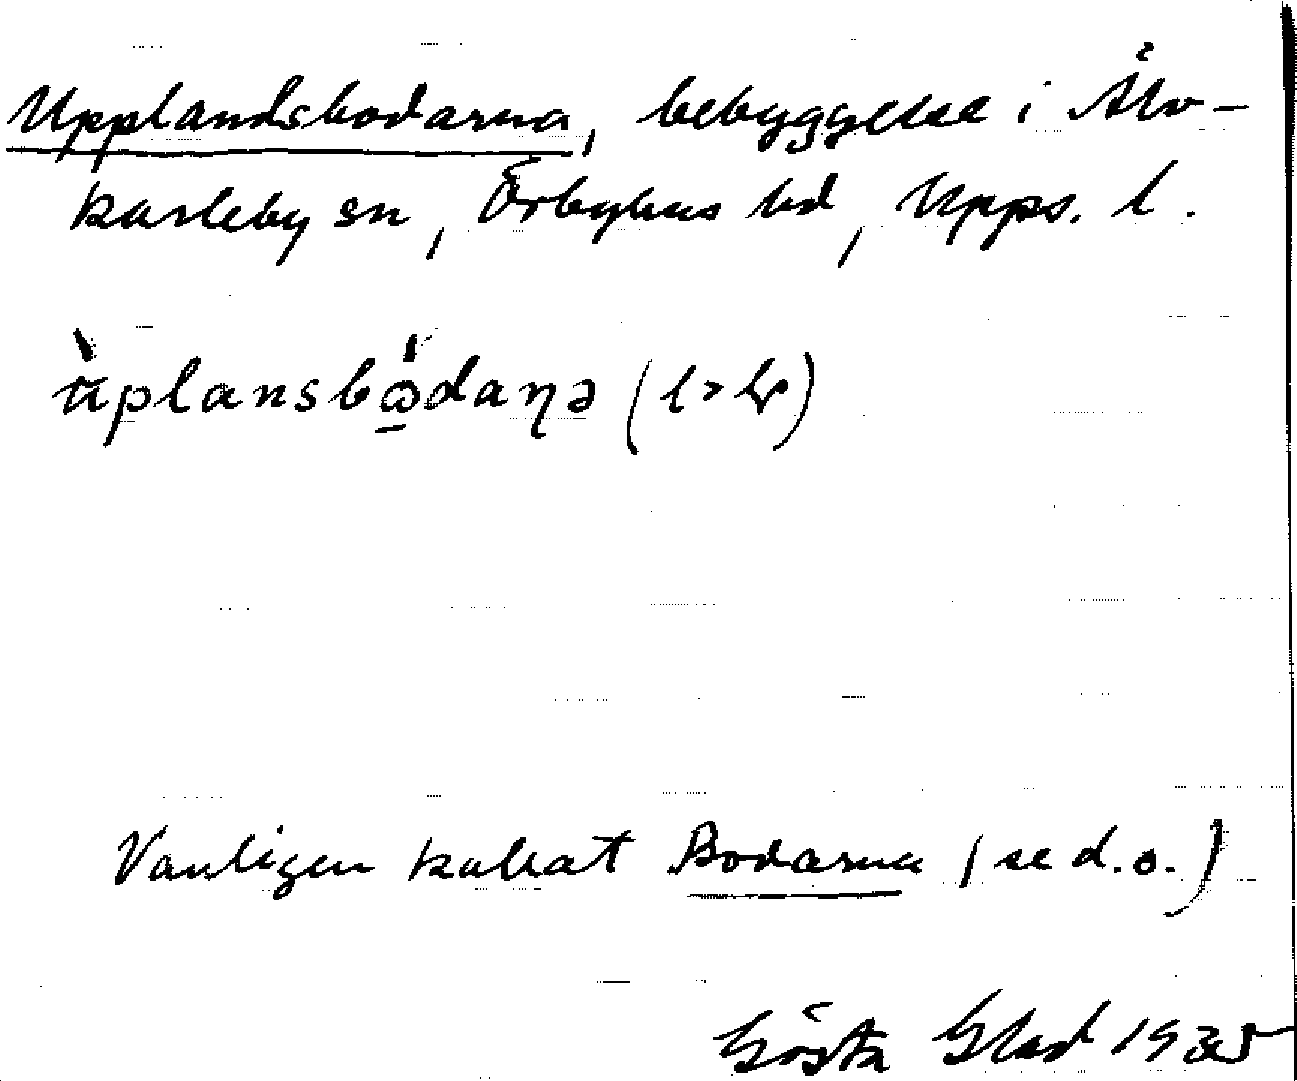 Upplandsbodarna, bebyggelse i Älv-
karleby sn, Örbyhus hd, Upps. l.
ùplansbὼ̲daŋə (l > ɽ)
Vanligen kallat Bodarna (se d.o.)
Gösta Blad 1935